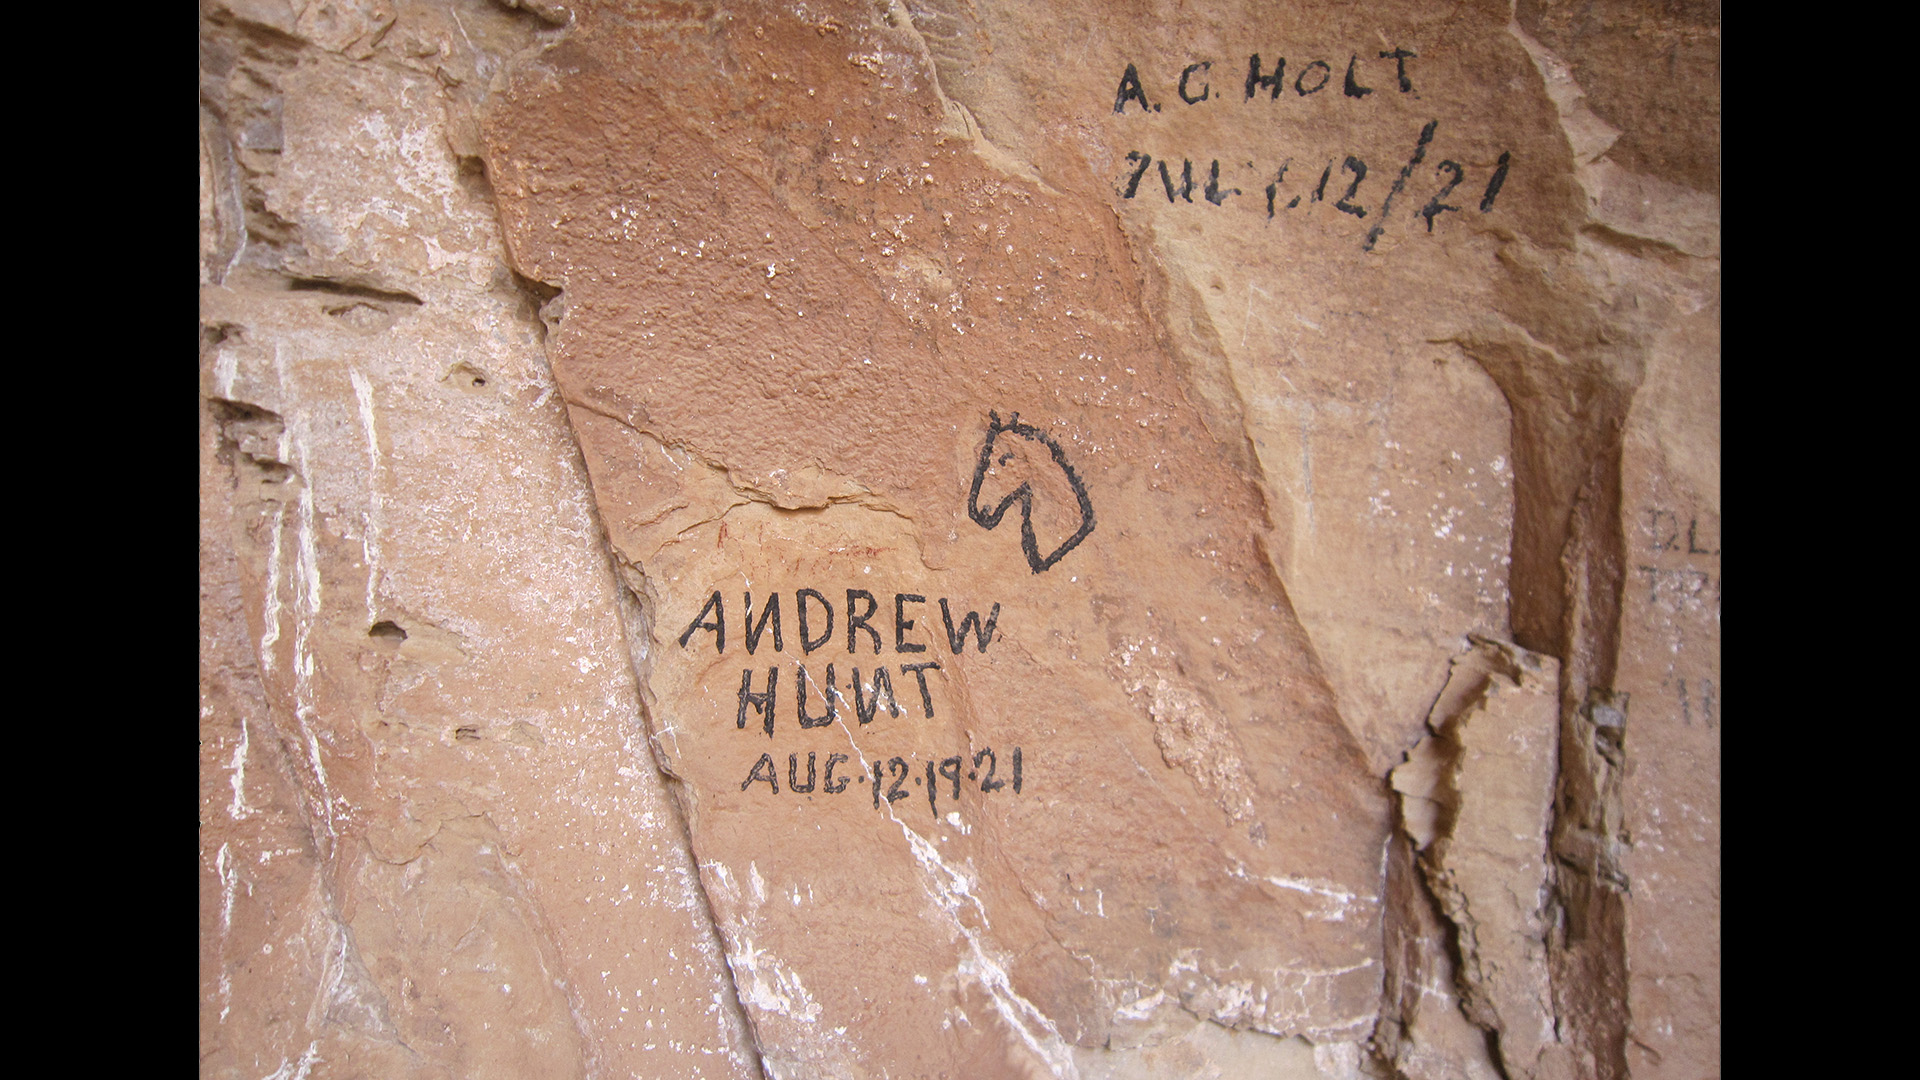 A. C. HOLT
JULY.12/21
ANDREW
HUNT
AUG.12.19.21
D.L.